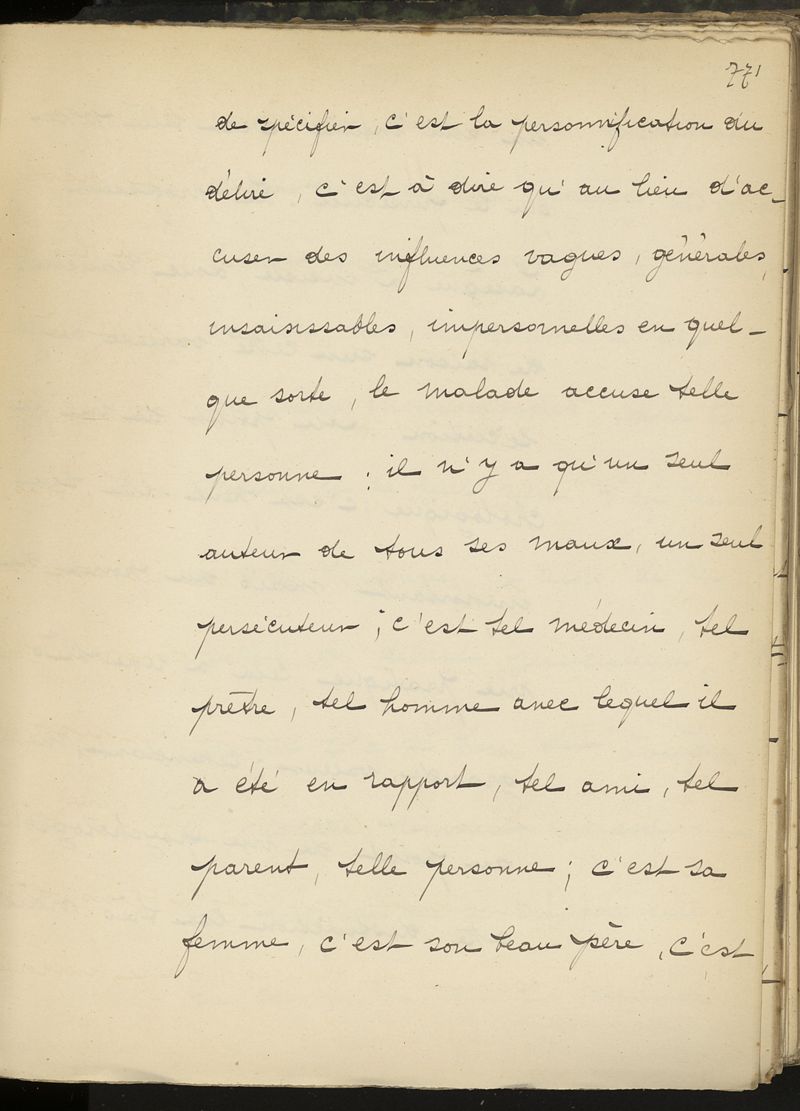 771
de spécifier, c'est la personnification du
délire, c'est à dire qu'au lieu d'ac-
cuser des influences vagues, générales,
insaisissables, impersonnelles en quel-
que sorte, le malade accuse telle
personne : il n'y a qu'un seul
auteur de tous ses maux, un seul
persécuteur ; c'est tel médecin, tel
prêtre, tel homme avec lequel il
a été en rapport, tel ami, tel
parent, telle personne ; c'est sa
femme, c'est son beau père, c'est